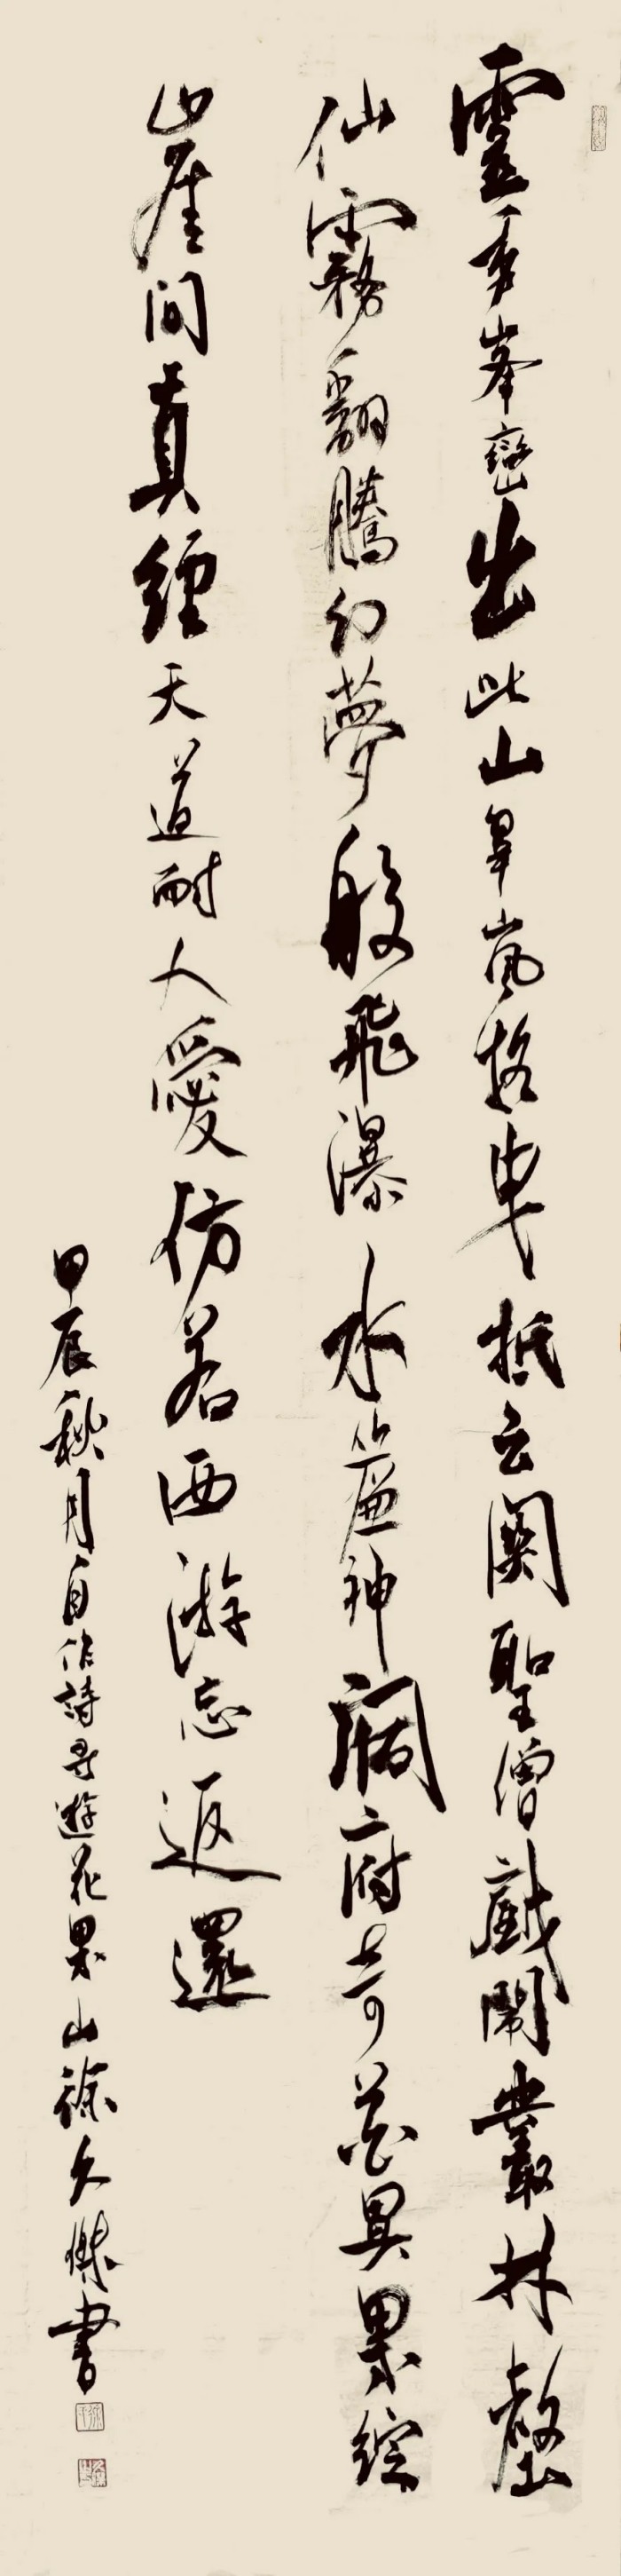 靈秀峯巒出此山翠嵐搖曳抵云關聖僧戲鬧叢林壑
仙霧翻騰幻夢般飛瀑水簾神洞府奇葩異果綻
崖間真經天道耐人愛仿若西游忘返還
甲辰秋月自作詩尋遊花果山徐久傑書